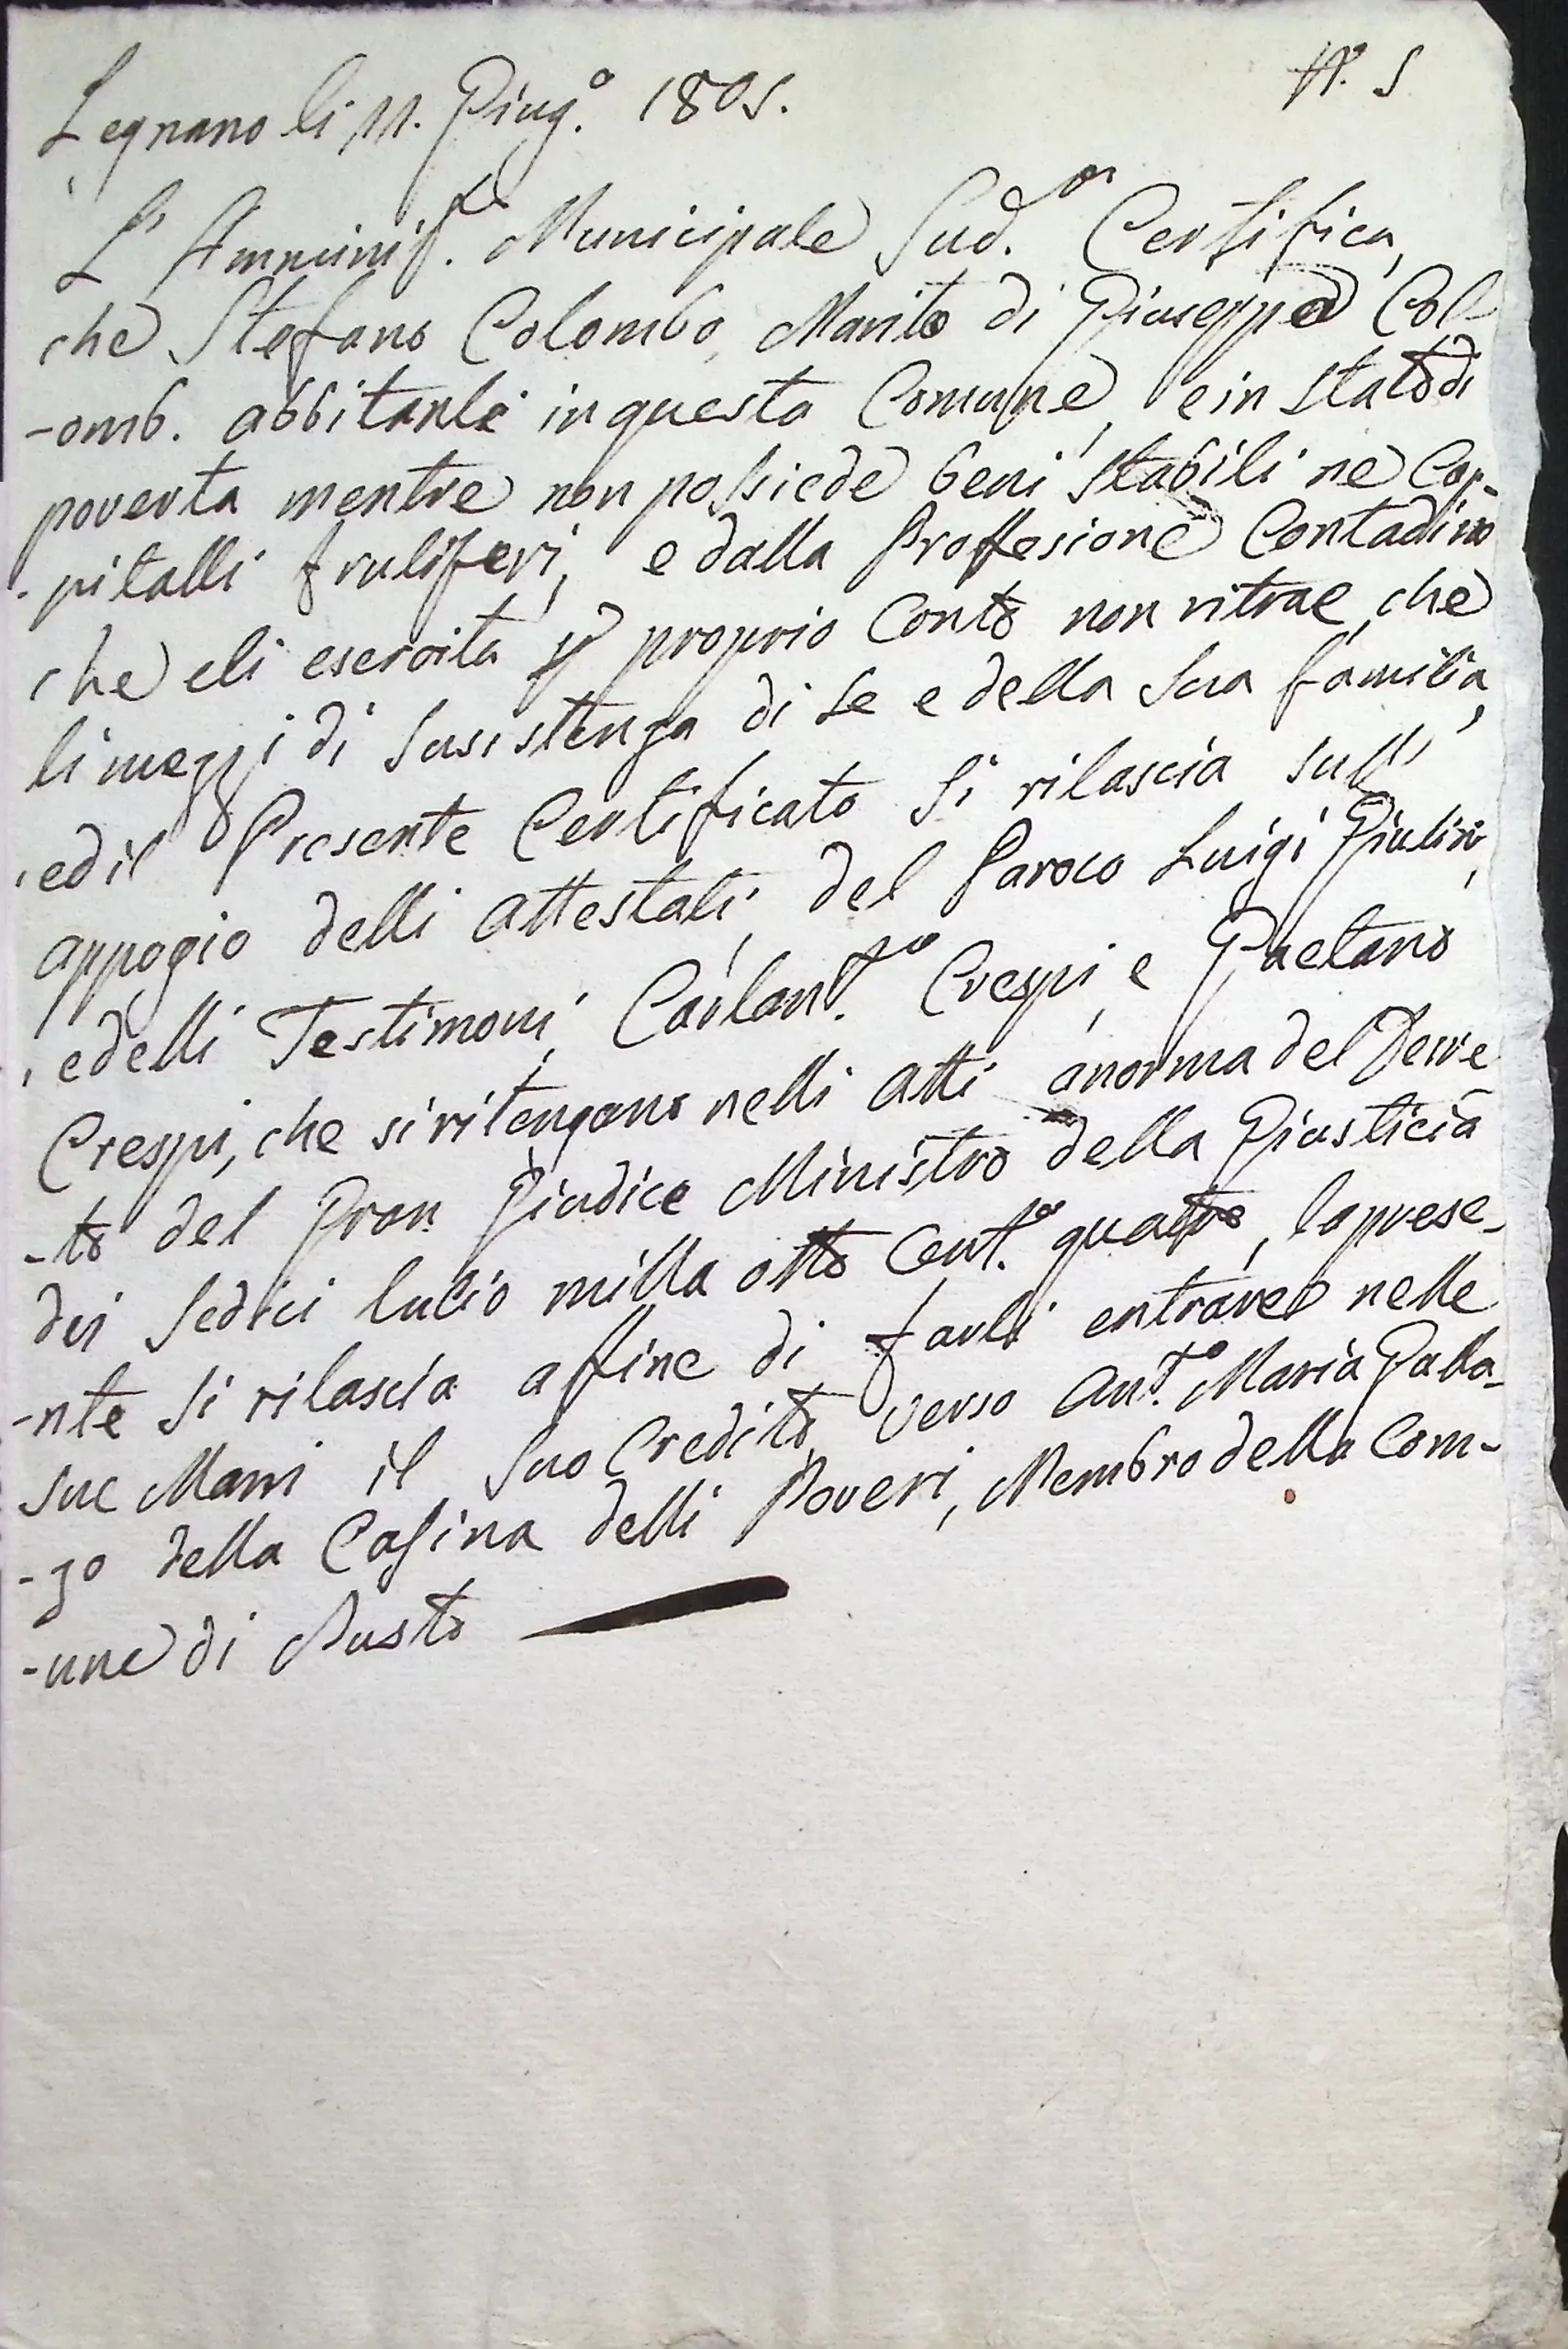 N.º 5
Legnano li 11. Giug.º 1805.
L'Amminis.ne Municipale Sud.a Certifica,
che Stefano Colombo, Marito di Giuseppa Col-
-omb. abbitante in questa Comune, e in stato di
poverta mentre non possiede beni stabili ne Cap-
-pitalli frutiferi, e dalla Proffesione Contadino
che eli esercita per proprio Conto non ritrae che
li mezzi di susistenza di se e della sua familia,
ed il Presente Certificato si rilascia sull'
appogio delli attestati del Paroco Luigi Giulini,
e delli Testimoni, Carlant.º Crespi, e Gaetano
Crespi, che si ritengano nelli atti a norma del Decre
-to del Gran Giudice Ministro della Giusticia
dei Sedici luglio milla otto Cent.º quatro, la prese-
-nte si rilascia affine di farli entrare nelle
sue Mani il suo Credito verso Ant.º Maria Galla-
-zo della Casina delli Poveri, Membro della Com-
-une di Busto